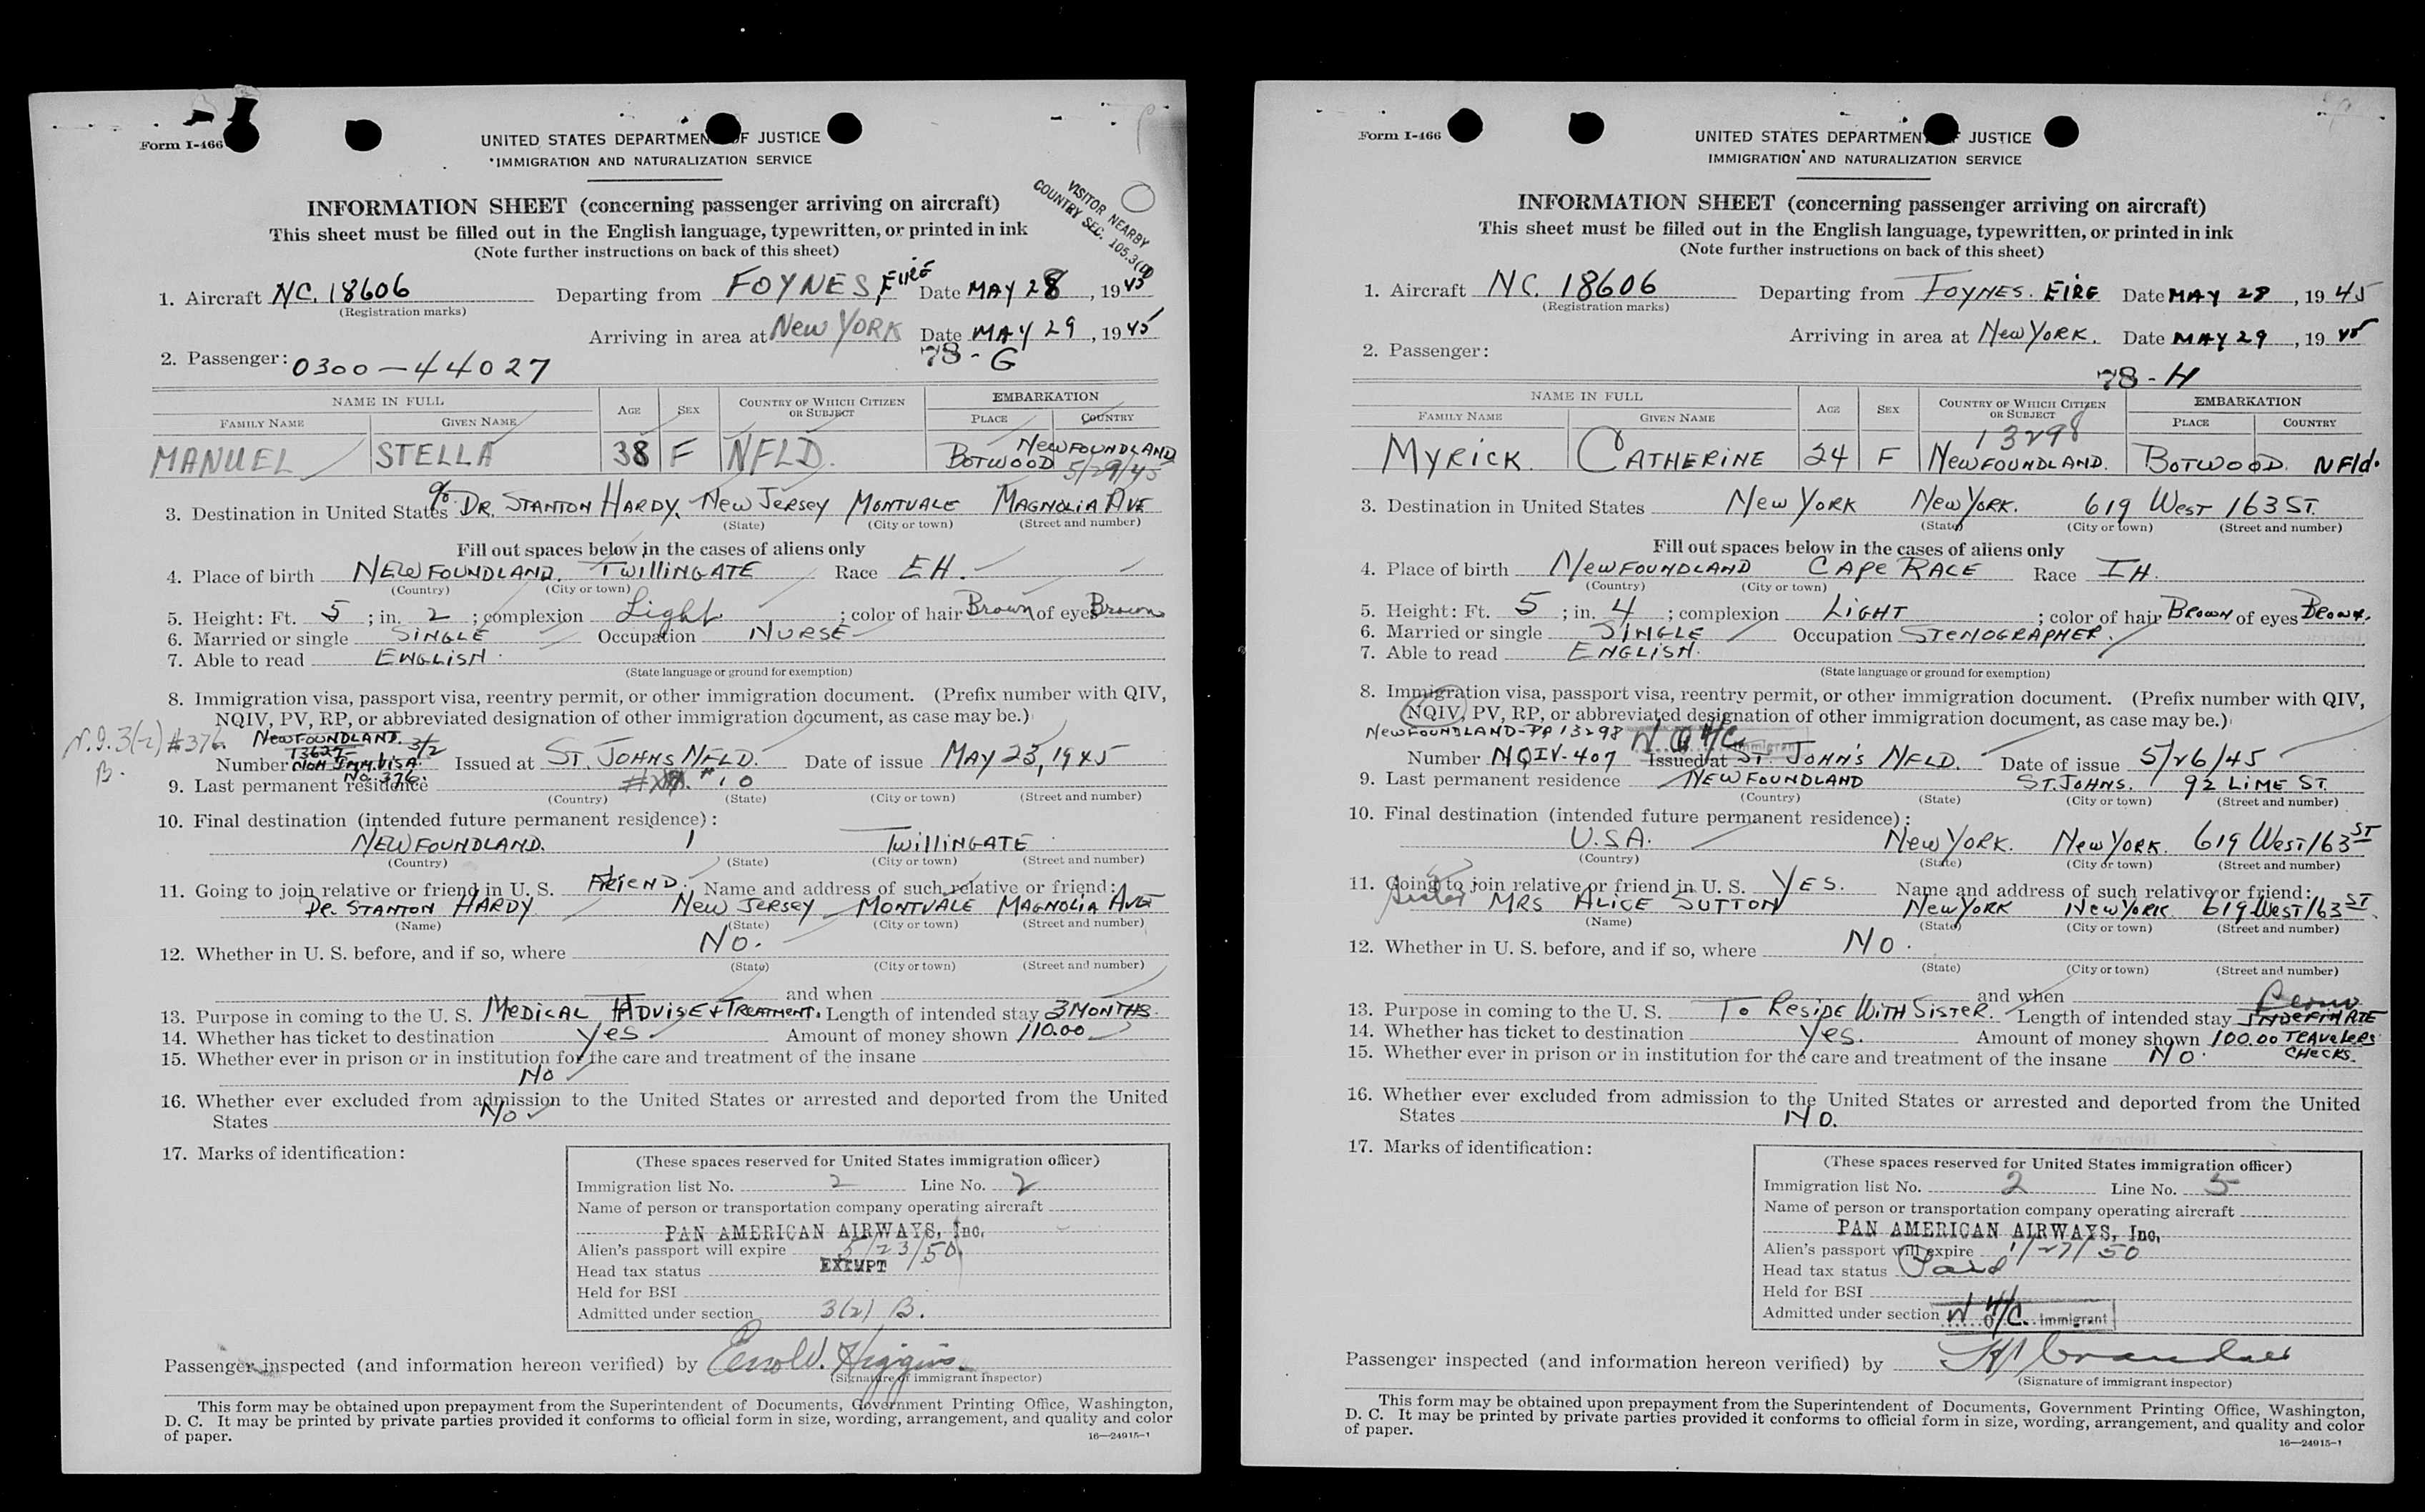 Form I-466
UNITED STATES DEPARTMENT OF JUSTICE
IMMIGRATION AND NATURALIZATION SERVICE
VISITOR NEARBY
COUNTRY SEC. 105.3(
INFORMATION SHEET (concerning passenger arriving on aircraft)
This sheet must be filled out in the English language, typewritten, or printed in ink
(Note further instructions on back of this sheet)
1. Aircraft NC. 18606 Departing from FOYNES, EIRE Date MAY 28, 1945
(Registration marks)
Arriving in area at New YORK Date MAY 29, 1945
2. Passenger: 0300-44027 78-G
NAME IN FULL AGE SEX COUNTRY OF WHICH CITIZEN OR SUBJECT EMBARKATION
FAMILY NAME GIVEN NAME PLACE COUNTRY
MANUEL STELLA 38 F NFLD. BOTWOOD NEWFOUNDLAND
5/29/45
3. Destination in United States % DR. STANTON HARDY, New Jersey MONTVALE MAGNOLIA AVE
(State) (City or town) (Street and number)
Fill out spaces below in the cases of aliens only
4. Place of birth NEWFOUNDLAND. TWILLINGATE Race EH.
(Country) (City or town)
5. Height: Ft. 5; in. 2; complexion Light; color of hair Brown of eyes Brown
6. Married or single SINGLE Occupation NURSE
7. Able to read ENGLISH.
(State language or ground for exemption)
8. Immigration visa, passport visa, reentry permit, or other immigration document. (Prefix number with QIV,
NQIV, PV, RP, or abbreviated designation of other immigration document, as case may be.)
N.I. 3(2) #376 NEWFOUNDLAND. 3/2
B.
Number NON IMM. VISA. No. 376. Issued at ST. JOHNS NFLD. Date of issue MAY 23, 1945
9. Last permanent residence # 10
(Country) (State) (City or town) (Street and number)
10. Final destination (intended future permanent residence):
NEWFOUNDLAND. TWILLINGATE
(Country) (State) (City or town) (Street and number)
11. Going to join relative or friend in U. S. FRIEND. Name and address of such relative or friend:
DR. STANTON HARDY New Jersey MONTVALE MAGNOLIA AVE
(Name) (State) (City or town) (Street and number)
12. Whether in U. S. before, and if so, where NO.
(State) (City or town) (Street and number)
and when
13. Purpose in coming to the U. S. MEDICAL ADVISE + TREATMENT. Length of intended stay 3 MONTHS.
14. Whether has ticket to destination Yes Amount of money shown 110.00
15. Whether ever in prison or in institution for the care and treatment of the insane
No
16. Whether ever excluded from admission to the United States or arrested and deported from the United
States No
17. Marks of identification:
(These spaces reserved for United States immigration officer)
Immigration list No. 2 Line No. 2
Name of person or transportation company operating aircraft
PAN AMERICAN AIRWAYS, Inc.
Alien's passport will expire 5/23/50
Head tax status EXEMPT
Held for BSI
Admitted under section 3(2) B.
Passenger inspected (and information hereon verified) by Errol W. Higgins
(Signature of immigrant inspector)
This form may be obtained upon prepayment from the Superintendent of Documents, Government Printing Office, Washington,
D. C. It may be printed by private parties provided it conforms to official form in size, wording, arrangement, and quality and color
of paper.
16—24915-1
Form I-466
UNITED STATES DEPARTMENT JUSTICE
IMMIGRATION AND NATURALIZATION SERVICE
INFORMATION SHEET (concerning passenger arriving on aircraft)
This sheet must be filled out in the English language, typewritten, or printed in ink
(Note further instructions on back of this sheet)
1. Aircraft NC. 18606 Departing from FOYNES. EIRE Date MAY 28, 1945
(Registration marks)
Arriving in area at New YORK. Date MAY 29, 1945
2. Passenger:
78-H
NAME IN FULL AGE SEX COUNTRY OF WHICH CITIZEN OR SUBJECT EMBARKATION
FAMILY NAME GIVEN NAME PLACE COUNTRY
13298
MYRICK CATHERINE 24 F NEWFOUNDLAND. BOTWOOD. NFld.
3. Destination in United States New YORK New YORK. 619 WEST 163 ST.
(State) (City or town) (Street and number)
Fill out spaces below in the cases of aliens only
4. Place of birth NEWFOUNDLAND CAPE RACE Race IH.
(Country) (City or town)
5. Height: Ft. 5; in. 4; complexion LIGHT; color of hair BROWN of eyes BROWN.
6. Married or single SINGLE Occupation STENOGRAPHER.
7. Able to read ENGLISH.
(State language or ground for exemption)
8. Immigration visa, passport visa, reentry permit, or other immigration document. (Prefix number with QIV,
NQIV, PV, RP, or abbreviated designation of other immigration document, as case may be.)
NEWFOUNDLAND-PP 13298
Number NQIV-407 Issued at ST. JOHN'S NFLD. Date of issue 5/26/45
9. Last permanent residence NEWFOUNDLAND ST. JOHNS. 92 LIME ST.
(Country) (State) (City or town) (Street and number)
10. Final destination (intended future permanent residence):
U.S.A. New YORK. New YORK. 619 West 163 ST
(Country) (State) (City or town) (Street and number)
11. Going to join relative or friend in U. S. YES. Name and address of such relative or friend:
Sister MRS ALICE SUTTON New YORK New YORK 619 West 163 ST.
(Name) (State) (City or town) (Street and number)
12. Whether in U. S. before, and if so, where NO.
(State) (City or town) (Street and number)
and when
13. Purpose in coming to the U. S. TO RESIDE WITH SISTER. Length of intended stay Perm INDEFINATE
14. Whether has ticket to destination Yes. Amount of money shown 100.00 TRAVELERS CHECKS.
15. Whether ever in prison or in institution for the care and treatment of the insane NO.
16. Whether ever excluded from admission to the United States or arrested and deported from the United
States NO.
17. Marks of identification:
(These spaces reserved for United States immigration officer)
Immigration list No. 2 Line No. 5
Name of person or transportation company operating aircraft
PAN AMERICAN AIRWAYS, Inc.
Alien's passport will expire 1/27/50
Head tax status Paid
Held for BSI
Admitted under section N 4/C. Immigrant
Passenger inspected (and information hereon verified) by
(Signature of immigrant inspector)
This form may be obtained upon prepayment from the Superintendent of Documents, Government Printing Office, Washington,
D. C. It may be printed by private parties provided it conforms to official form in size, wording, arrangement, and quality and color
of paper.
16—24915-1